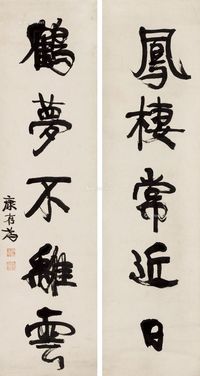 鳳棲常近日
鶴夢不離雲
康有為